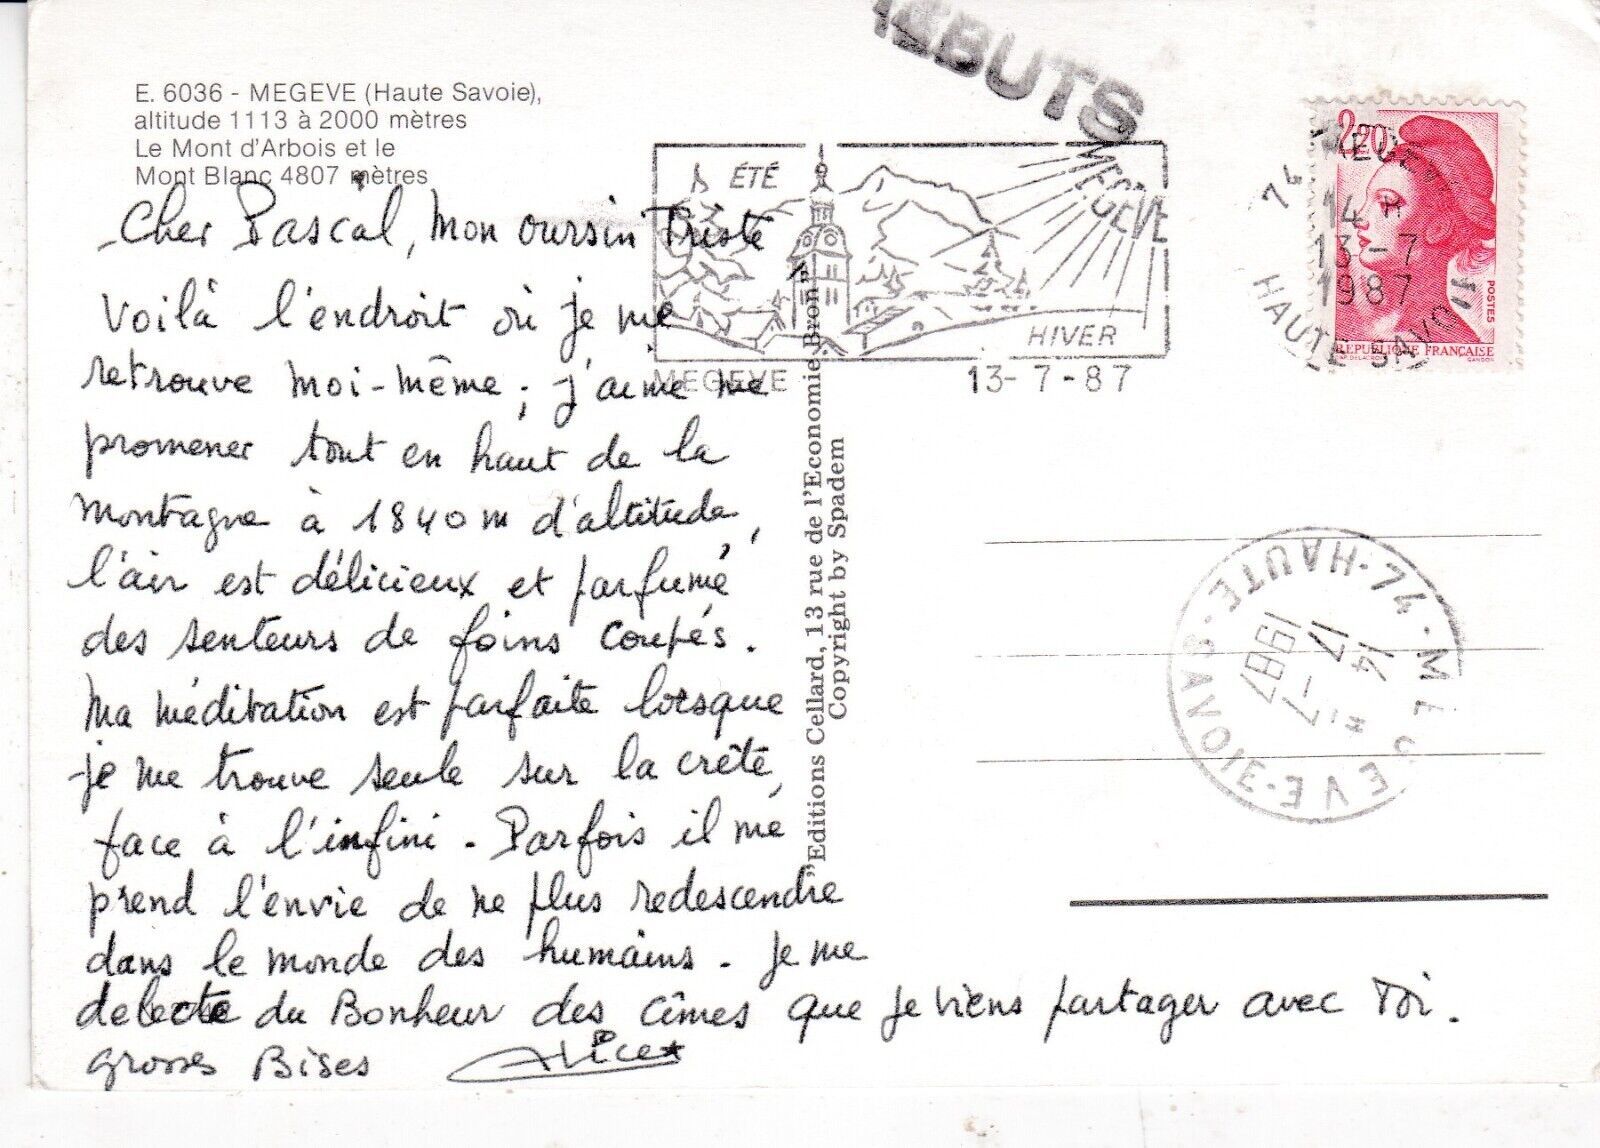 E. 6036 - MEGEVE (Haute Savoie),
altitude 1113 à 2000 mètres
Le Mont d'Arbois et le
Mont Blanc 4807 mètres
Cher Pascal, Mon oursin Triste
Voilà l'endroit où je me
retrouve moi-même ; j'aime me
promener tout en haut de la
montagne à 1840m d'altitude,
l'air est délicieux et parfumé
des senteurs de foins coupés.
Ma méditation est parfaite lorsque
je me trouve seule sur la crête,
face à l'infini. Parfois il me
prend l'envie de ne plus redescendre
dans le monde des humains. Je me
delecte du Bonheur des cîmes que je viens partager avec Toi.
grosses Bises Alice
"Editions Cellard, 13 rue de l'Economie Bron"
Copyright by Spadem
EBUTS
ÉTÉ
MEGÈVE
HIVER
MEGEVE 13-7-87
2,20
POSTES
REPUBLIQUE FRANÇAISE
GANDON
14 H
13-7
1987
HAUTE-SAVOI
74 · HAUTE · SAVOIE · EVE
14 H
17-7
1987